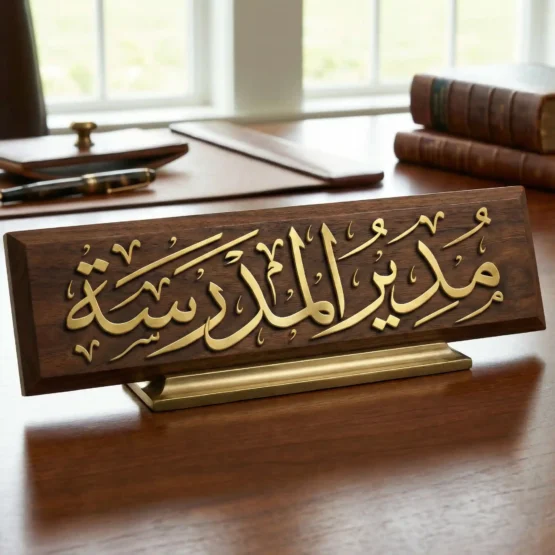 مُدِيرُ المدرسة